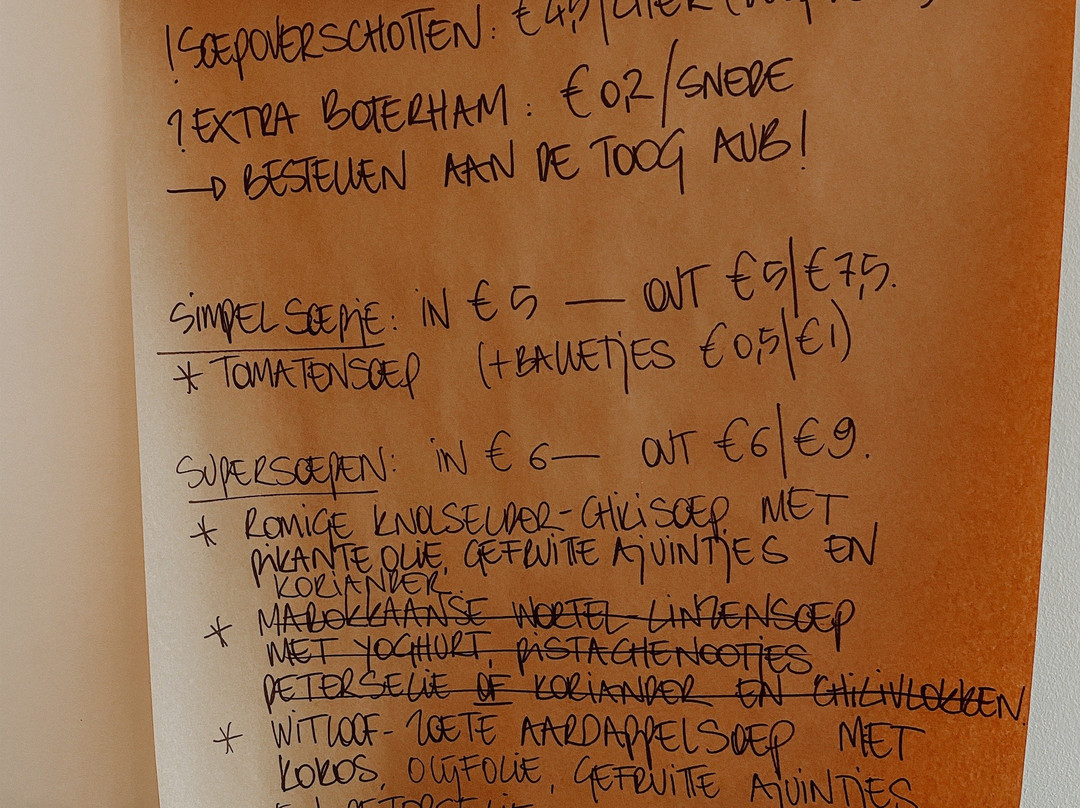 ! SOEPOVERSCHOTTEN: € 4,5/LITER
? EXTRA BOTERHAM: € 0,2/SNEDE
→ BESTELLEN AAN DE TOOG AUB!
SIMPEL SOEPJE: IN € 5 — OUT €5|€7,5.
* TOMATENSOEP (+BALLETJES €0,5|€1)
SUPERSOEPEN: IN € 6 — OUT €6|€9.
* ROMIGE KNOLSELDER-CHILISOEP MET
PIKANTE OLIE, GEFRUITE AJUINTJES EN
KORIANDER.
* MAROKKAANSE WORTEL-LINZENSOEP
MET YOGHURT, PISTACHENOOTJES
PETERSELIE OF KORIANDER EN CHILIVLOKKEN.
* WITLOOF-ZOETE AARDAPPELSOEP MET
KOKOS, OLIJFOLIE, GEFRUITE AJUINTJES
EN PETERSELIE